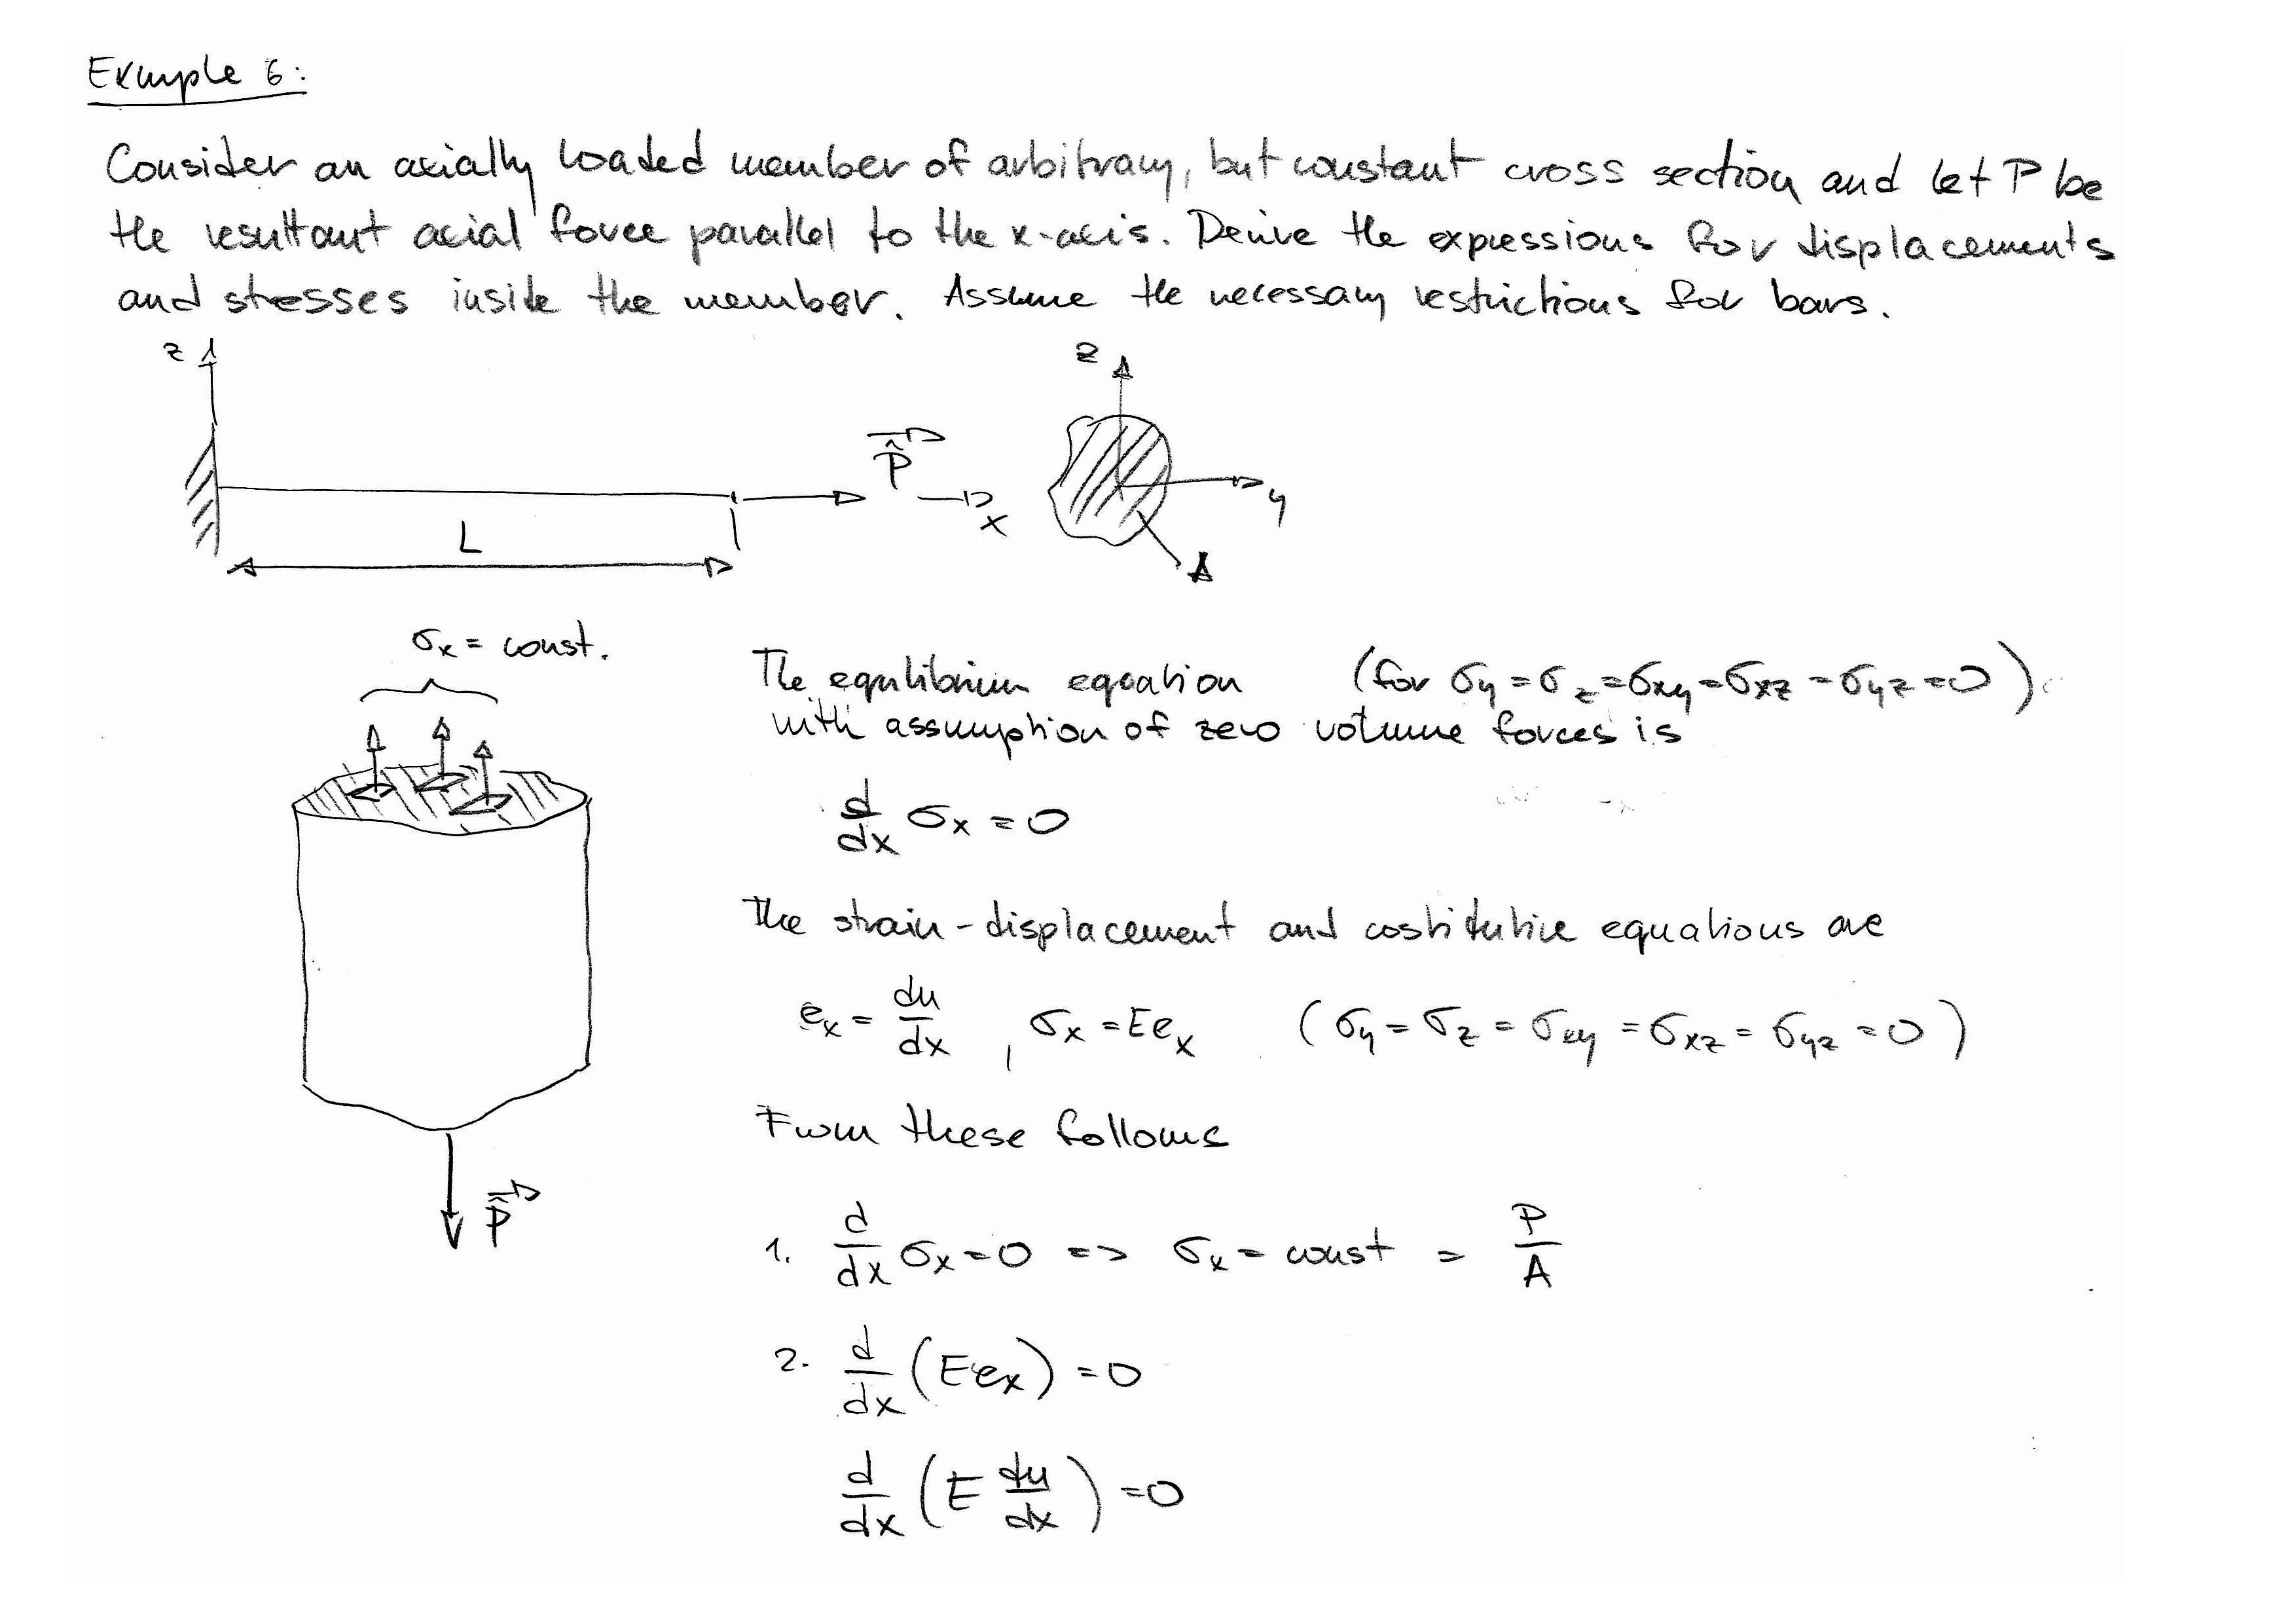 Example 6:
Consider an axially loaded member of arbitrary, but constant cross section and let P be
the resultant axial force parallel to the x-axis. Derive the expressions for displacements
and stresses inside the member. Assume the necessary restrictions for bars.
z
z
P̂
x
y
L
A
σx = const.
The equilibrium equation (for σy = σz = σxy = σxz = σyz = 0)
with assumption of zero volume forces is
d/dx σx = 0
The strain-displacement and costitutive equations are
ex = du/dx , σx = E ex (σy = σz = σxy = σxz = σyz = 0)
From these follows
P̂
1. d/dx σx = 0 => σx = const = P/A
2. d/dx (E ex) = 0
d/dx (E du/dx) = 0